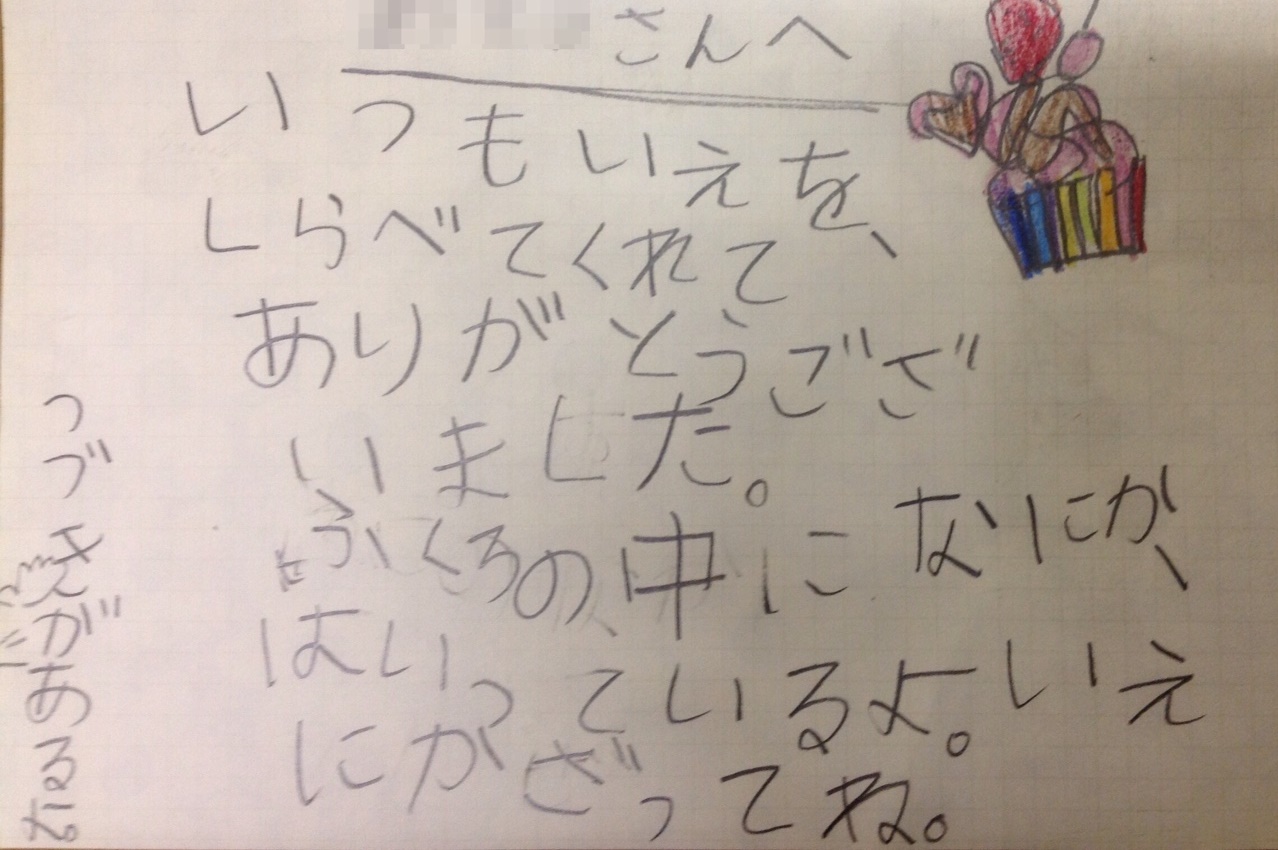 さんへ
いつもいえを、
しらべてくれて
ありがとうござ
いました。
ふくろの中になにか、
はいっているよ。いえ
にかざってね。
つづきがあるよ